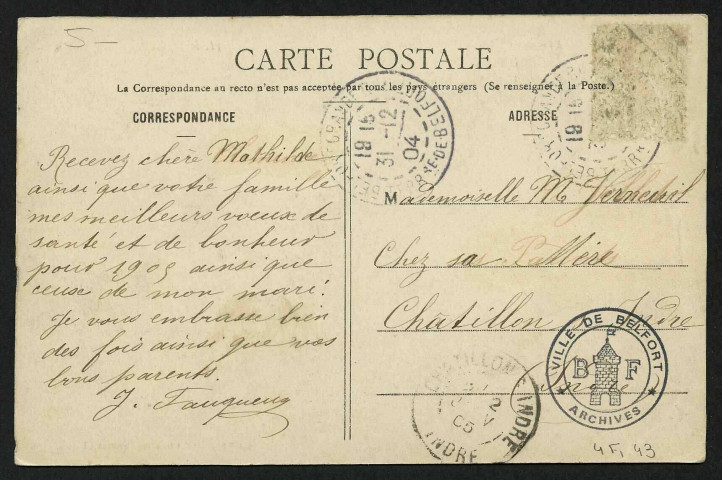 5-
CARTE POSTALE
La Correspondance au recto n'est pas acceptée par tous les pays étrangers (Se renseigner à la Poste.)
CORRESPONDANCE
Recevez chère Mathilde
ainsi que votre famille
mes meilleurs vœux de
santé et de bonheur
pour 1905 ainsi que
ceux de mon mari.
Je vous embrasse bien
des fois ainsi que vos
bons parents.
J.
ADRESSE
Mademoiselle M Verneuil
Chez sa Mère
Châtillon s Indre
Indre
19 15
31 -12
04
BELFORT
19 15
CHATILLON S INDRE
05
INDRE
VILLE DE BELFORT
B F
ARCHIVES
4 Fi 43